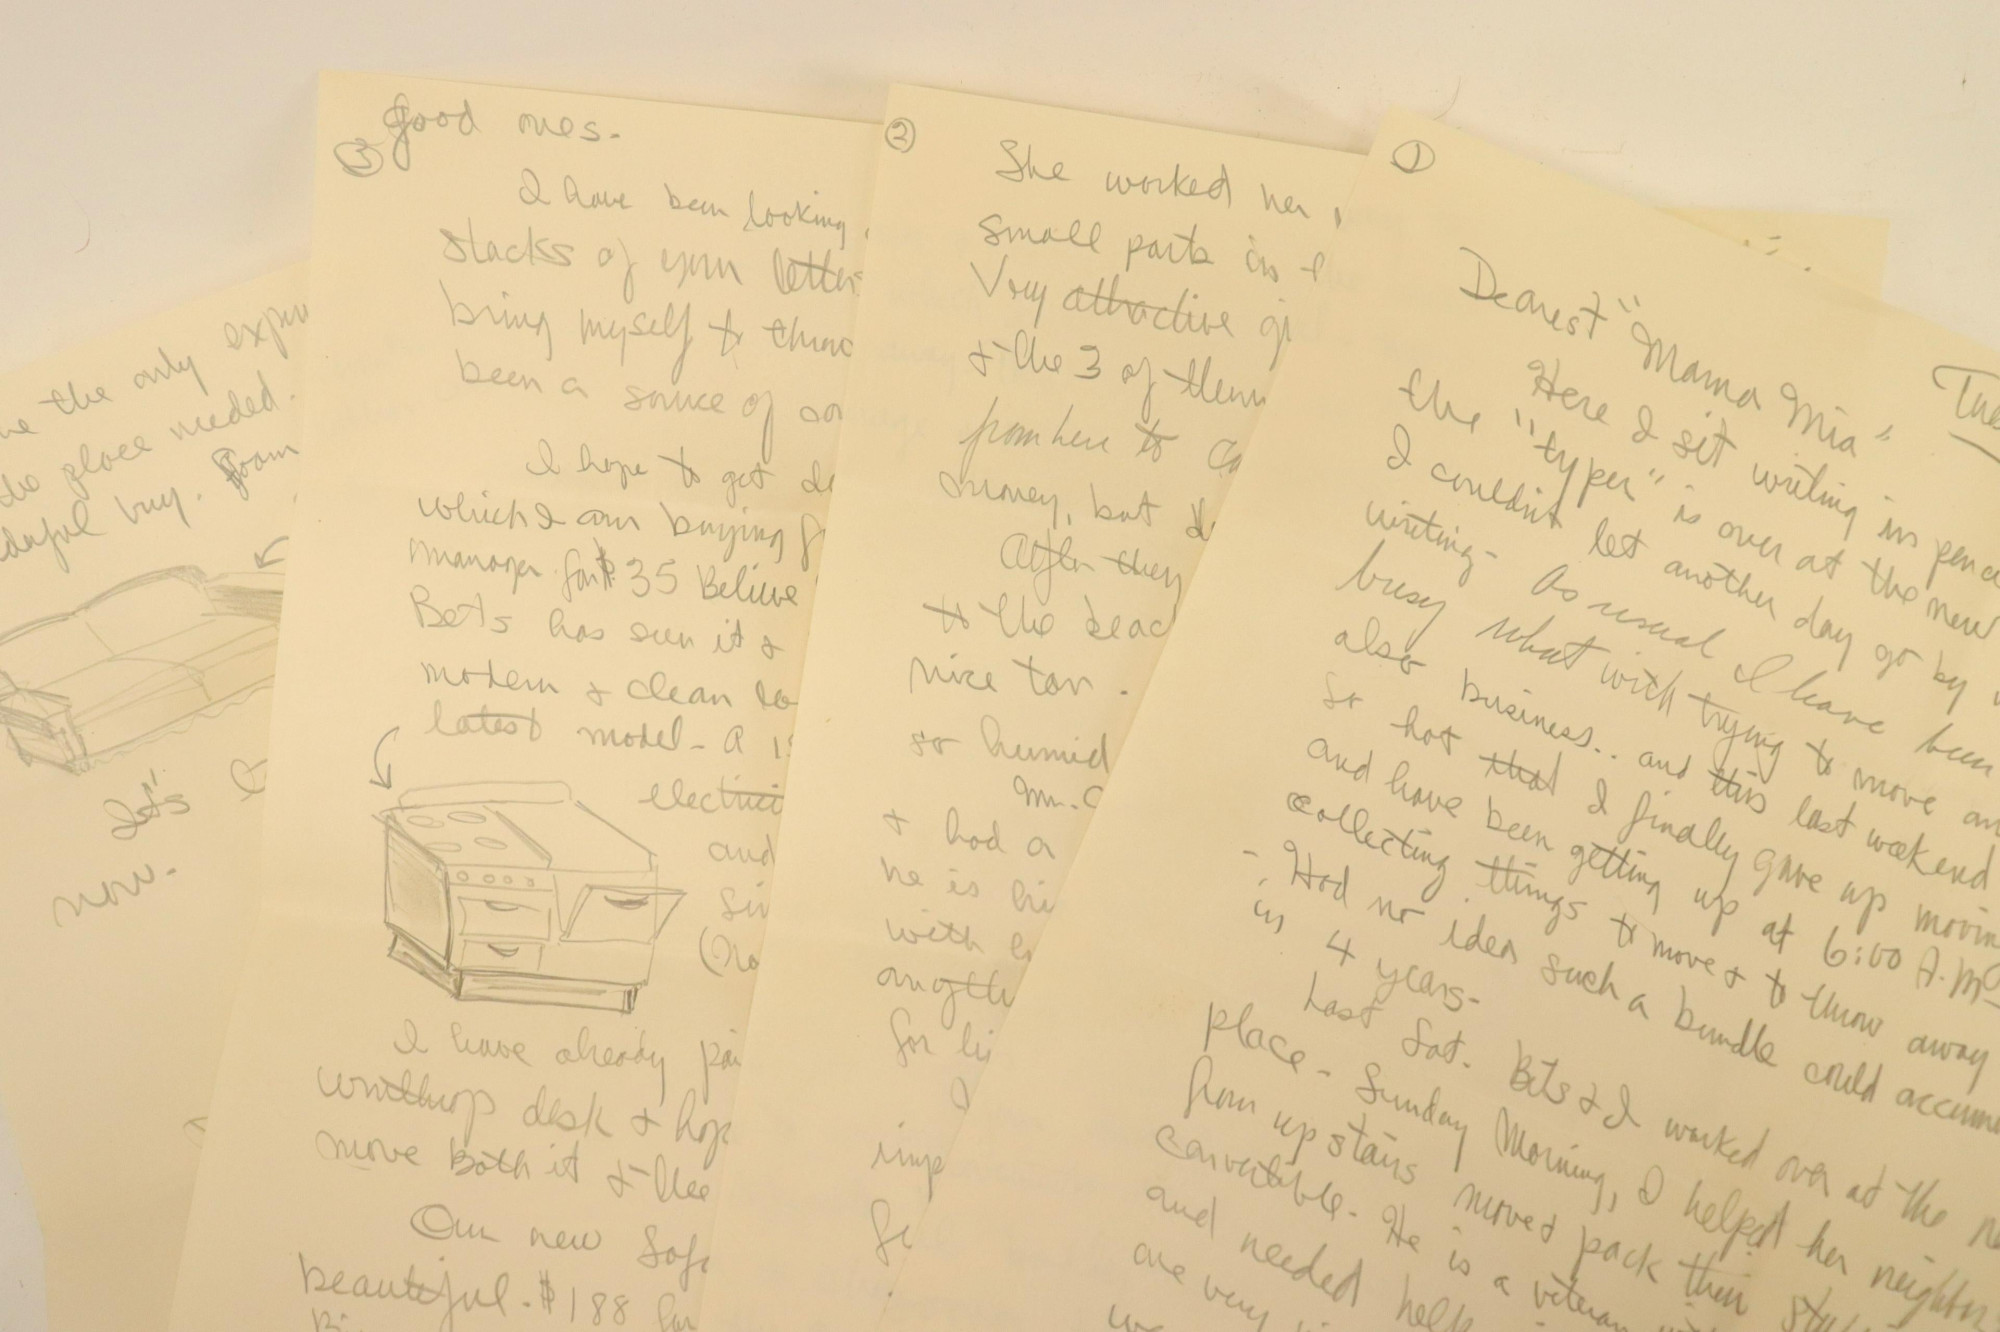 ①
Dearest "Mama Mia"
Tues
Here I sit writing in
the "typer" is over at the new
I couldn't let another day go by
writing - As usual I have been
busy what with trying to move
also business.. and this last weekend
so hot that I finally gave up
and have been getting up at 6:00 A.M.
collecting things to move & to throw away
- Had no idea such a bundle could
in 4 years-
Last Sat. Bets & I worked over at the
place - Sunday Morning, I helped her
from up stairs move & pack their
convertible. He is a veteran
and needed help
are very
②
She worked her
small parts in the
Very attractive
& the 3 of them
from here to
money, but
After they
to the
nice tan.
so humid
& had a
he is
with
for
③
good ones.
I have been looking
stacks of your
bring myself to
been a source of
I hope to get
which I am buying
manager for $35 Believe
Bets has seen it &
modern & clean
latest model - A
and
I have already
Winthrop desk &
move both it & the
Our new
beautiful. $188 for
the only
place needed.
buy. Foam
Let's
now.